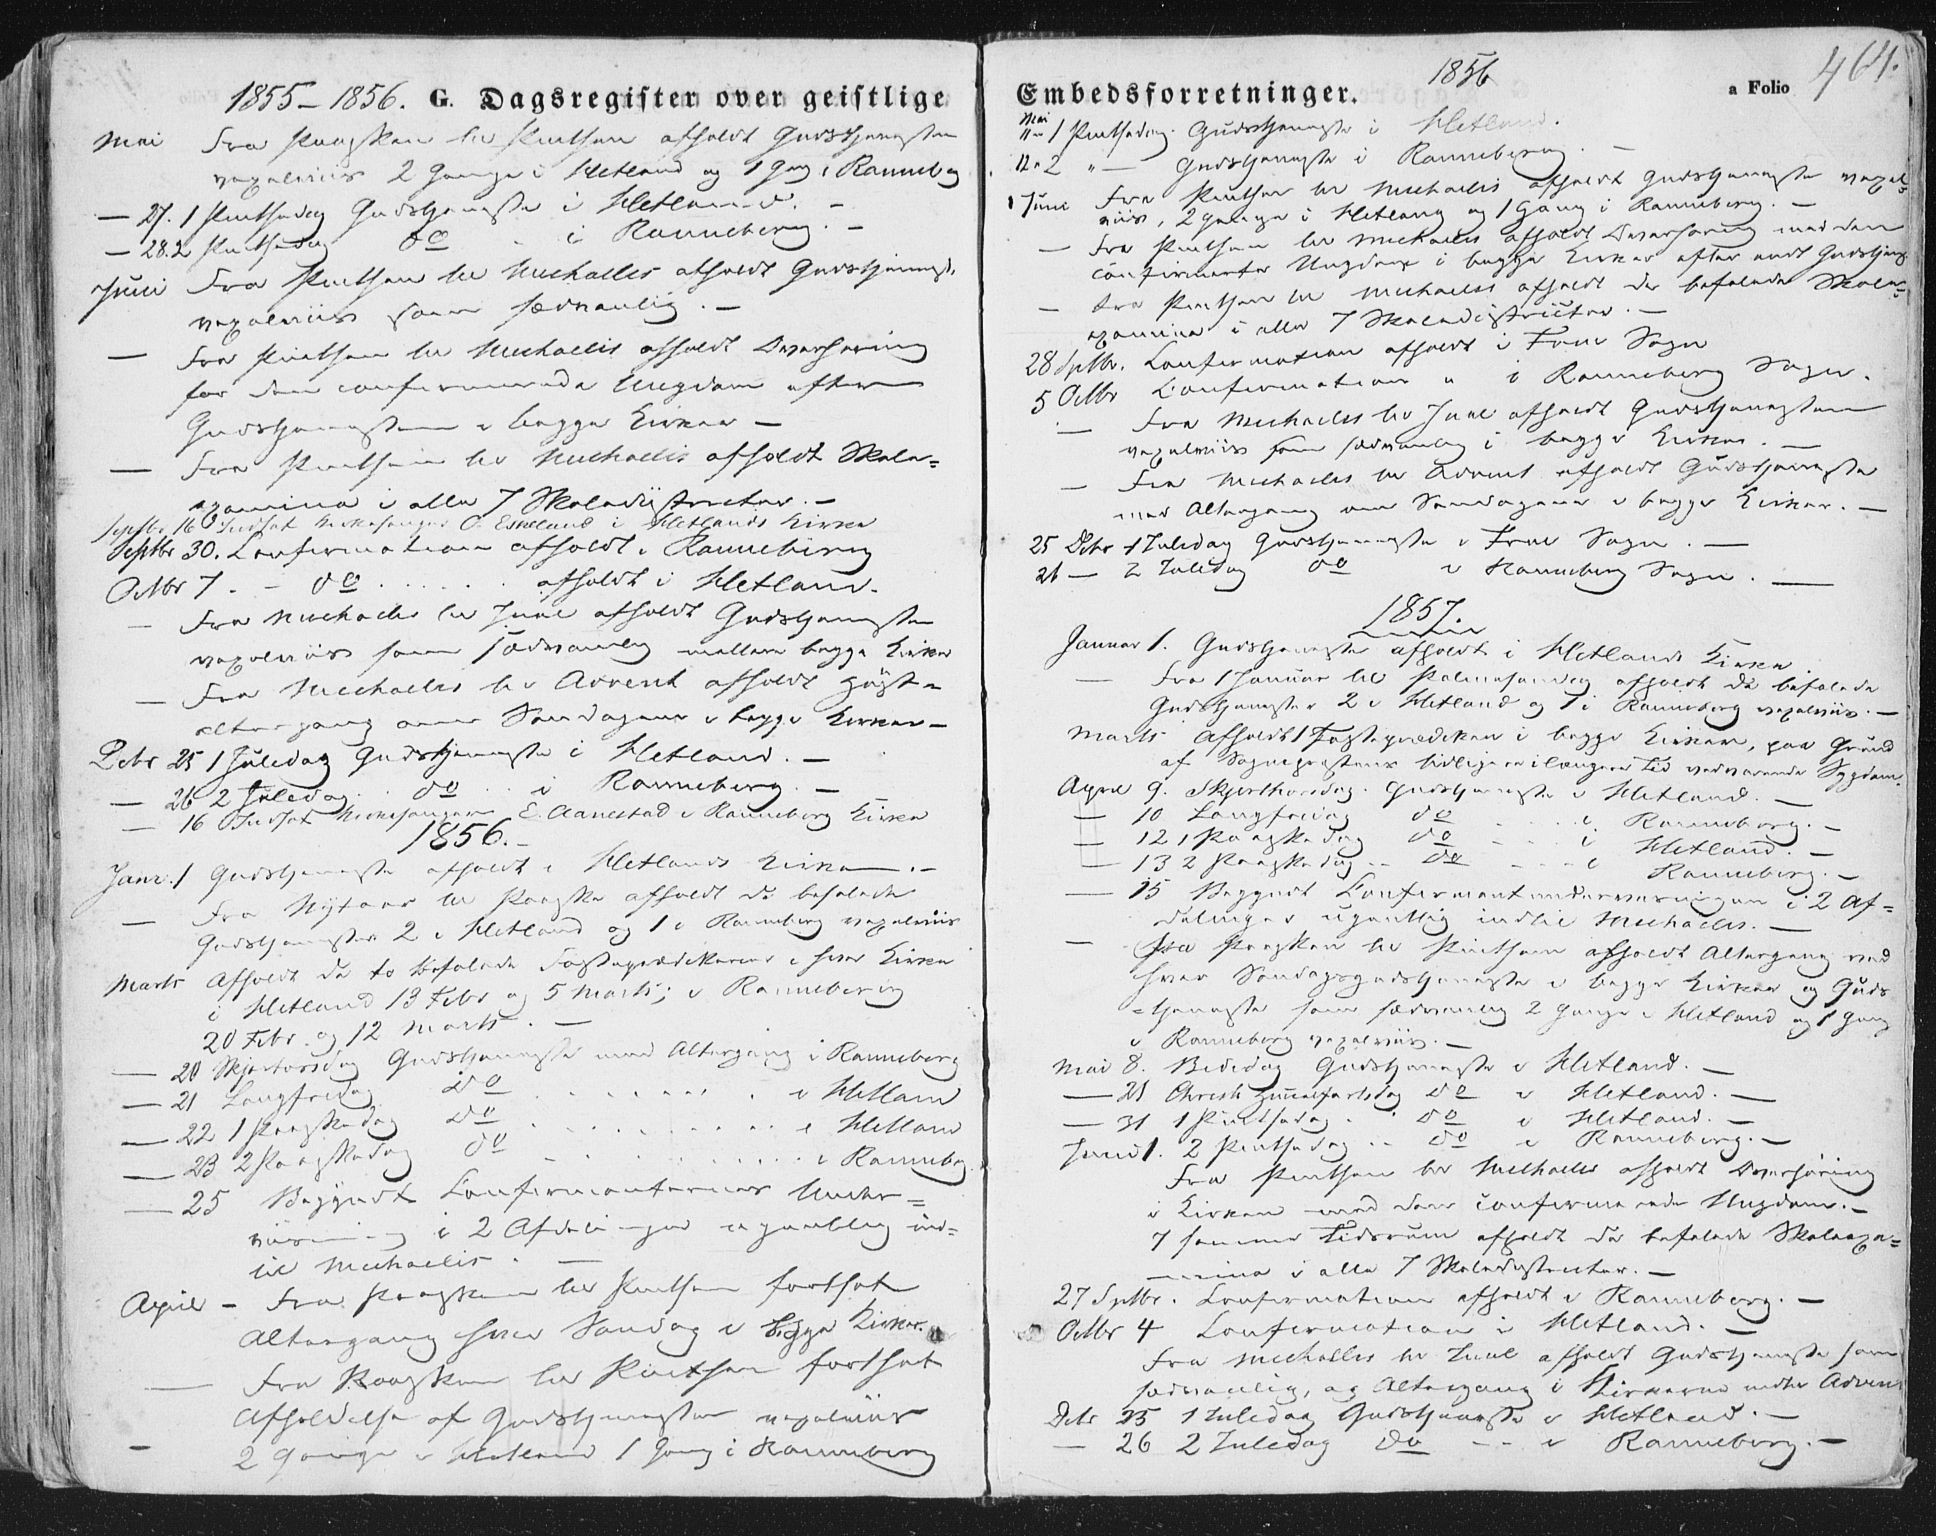 1855–1856. G. Dagsregister over geistlige
Mai Fra Paasken til Pintsen afholdt Gudstjenesten
vexelviis 2 Gange i Hetland og 1 Gang i Ranneberg
— 27. 1 Pintsedag Gudstjeneste i Hetland. —
— 28. 2 Pintsedag do i Ranneberg. —
Juni Fra Pintsen til Michaelis afholdt Gudstjenest.
vexelviis som sædvanlig. —
— Fra Pintsen til Michaelis afholdt Overhøring
for den confirmerede Ungdom efter
Gudstjenesten i begge Kirker —
— Fra Pintsen til Michaelis afholdt Skole=
examina i alle 7 Skoledistricter. —
Septbr 16 Indsat Kirkesanger O. Eskeland i Hetlands Kirke
Septbr 30. Confirmation afholdt i Ranneberg
Octbr 7. – do . . . . . afholdt i Hetland.
— Fra Michaelis til Juul afholdt Gudstjenesten
vexelviis som sædvanlig mellem begge Kirker
— Fra Michaelis til Advent afholdt
altergang om Søndagene i begge Kirker —
Debr 25 1 Juledag Gudstjeneste i Hetland. —
— 26 2 Juledag . . do . . i Ranneberg. —
— 16 Indsat Kirkesanger E. Aanestad i Ranneberg Kirke
1856. —
Janr. 1 Gudstjeneste afholdt i Hetlands Kirke. —
— Fra Nytaar til Paaske afholdt de befalede
Gudstjenester 2 i Hetland og 1 i Ranneberg vexelviis
Marts Afholdt de to befalede Fasteprædikener i hver Kirke
i Hetland 13 Febr og 5 Marts; i Ranneberg
20 Febr. og 12 Marts. —
— 20 Skjertorsdag Gudstjeneste med Altergang i Ranneberg
— 21 Langfredag do . . . . . . i Hetland
— 22 1 Paaskedag do . . . . . . . i Hetland
— 23 2 Paaskedag do . . . . . . . i Ranneberg
— 25 Begyndt Confirmanternes Under=
viisning i 2 Afdelinger ugentlig ind=
til Michaelis. —
April – Fra Paasken til Pintsen fortsat
Altergang hver Søndag i begge Kirker.
— Fra Paasken til Pintsen fortsat
Afholdelse af Gudstjenester vexelviis
— 2 Gange i Hetland 1 Gang i Ranneberg
1856
Embedsforretninger. a Folio 464.
Mai
11te 1 Pintsedag. Gudstjeneste i Hetland.
12te 2 " — Gudstjeneste i Ranneberg. —
Juni Fra Pintsen til Michaelis afholdt Gudstjeneste vexel=
viis, 2 Gange i Hetland og 1 Gang i Ranneberg. —
— Fra Pintsen til Michaelis afholdt Overhøring med den
confirmerte Ungdom i begge Kirker efter endt Gudstjeneste
— Fra Pintsen til Michaelis afholdt de befalede Skole=
examina i alle 7 Skoledistricter. —
28 Septbr. Confirmation afholdt i Frue Sogn
5 Octbr Confirmation " i Ranneberg Sogn.
— Fra Michaelis til Juul afholdt Gudstjenesten
vexelviis som sædvanlig i begge Kirker. —
— Fra Michaelis til Advent afholdt Gudstjeneste
med Altergang om Søndagene i begge Kirker. —
25 Debr 1 Juledag Gudstjeneste i Frue Sogn. —
26 — 2 Juledag do i Ranneberg Sogn. —
1857.
Januar 1. Gudstjeneste afholdt i Hetlands Kirke.
— Fra 1 Januar til Palmesøndag afholdt de befalede
Gudstjenester 2 i Hetland og 1 i Ranneberg vexelviis. —
Marts Afholdt 1 Fasteprædiken i begge Kirker, paa Grund
af Sognepræstens længere Tid vedvarende Sygdom.
April 9. Skjærthorsdag. Gudstjeneste i Hetland. —
— 10 Langfredag do . . . . i Ranneberg. —
— 12 1 Paaskedag do . . . . i Hetland. —
— 13 2 Paaskedag . . do . . . . i Ranneberg. —
— 15 Begyndt Confirmantunderviisningen i 2 Af=
delinger ugentlig indtil Michaelis. —
— Fra Paasken til Pintsen afholdt Altergang ved
hver Søndagsgudstjeneste i begge Kirker og Guds
=tjeneste som sædvanlig 2 Gange i Hetland og 1 Gang
i Ranneberg vexelviis. —
Mai 8. Bededag Gudstjeneste i Hetland. —
— 21 Christi Himmelfartsdag do i Hetland. —
— 31 1 Pintsedag . . do i Hetland. —
Juni 1. 2 Pintsedag . . do i Ranneberg. —
Fra Pintsen til Michaelis afholdt Overhøring
i Kirken med den confirmerede Ungdom. —
I samme Tidsrum afholdt de befalede Skoleexa=
mina i alle 7 Skoledistricter. —
27 Septbr. Confirmation afholdt i Ranneberg. —
Octbr 4 Confirmation i Hetland. —
Fra Michaelis til Juul afholdt Gudstjeneste som
sædvanlig, og Altergang i Kirkerne indtil Advent
Debr 25 1 Juledag Gudstjeneste i Hetland. —
— 26 2 Juledag do . . i Ranneberg. —